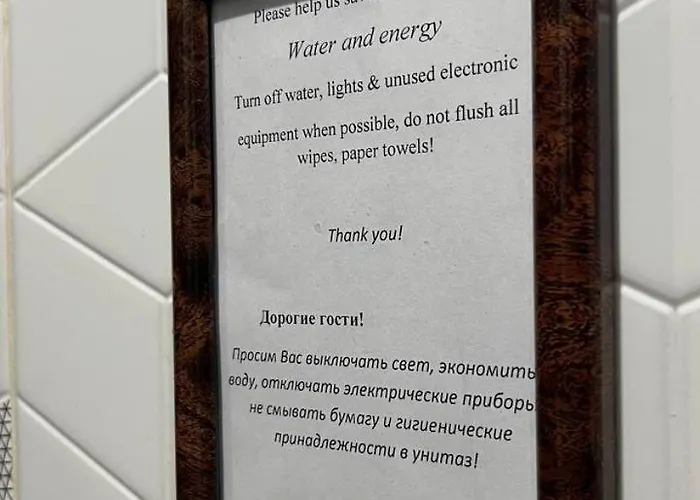 Please help us
Water and energy
Turn off water, lights & unused electronic
equipment when possible, do not flush all
wipes, paper towels!
Thank you!
Дорогие гости!
Просим Вас выключать свет, экономить
воду, отключать электрические приборы
не смывать бумагу и гигиенические
принадлежности в унитаз!